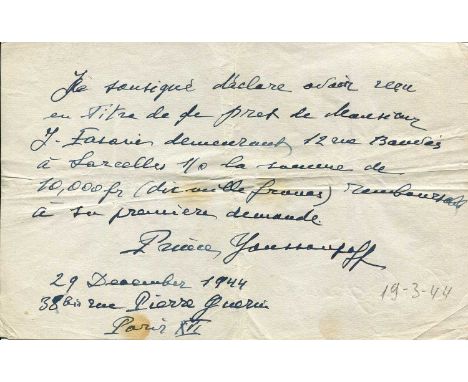 Je sousigné déclare avoir reçu
en titre de pret de Monsieur
J. demeurant, 12 rue
à Sarcelles S/O la somme de
10,000fr (dix mille francs)
à sa première demande
Prince Youssoupoff
29 December 1944
38 bis rue Pierre Guerin
Paris XVI
19-3-44